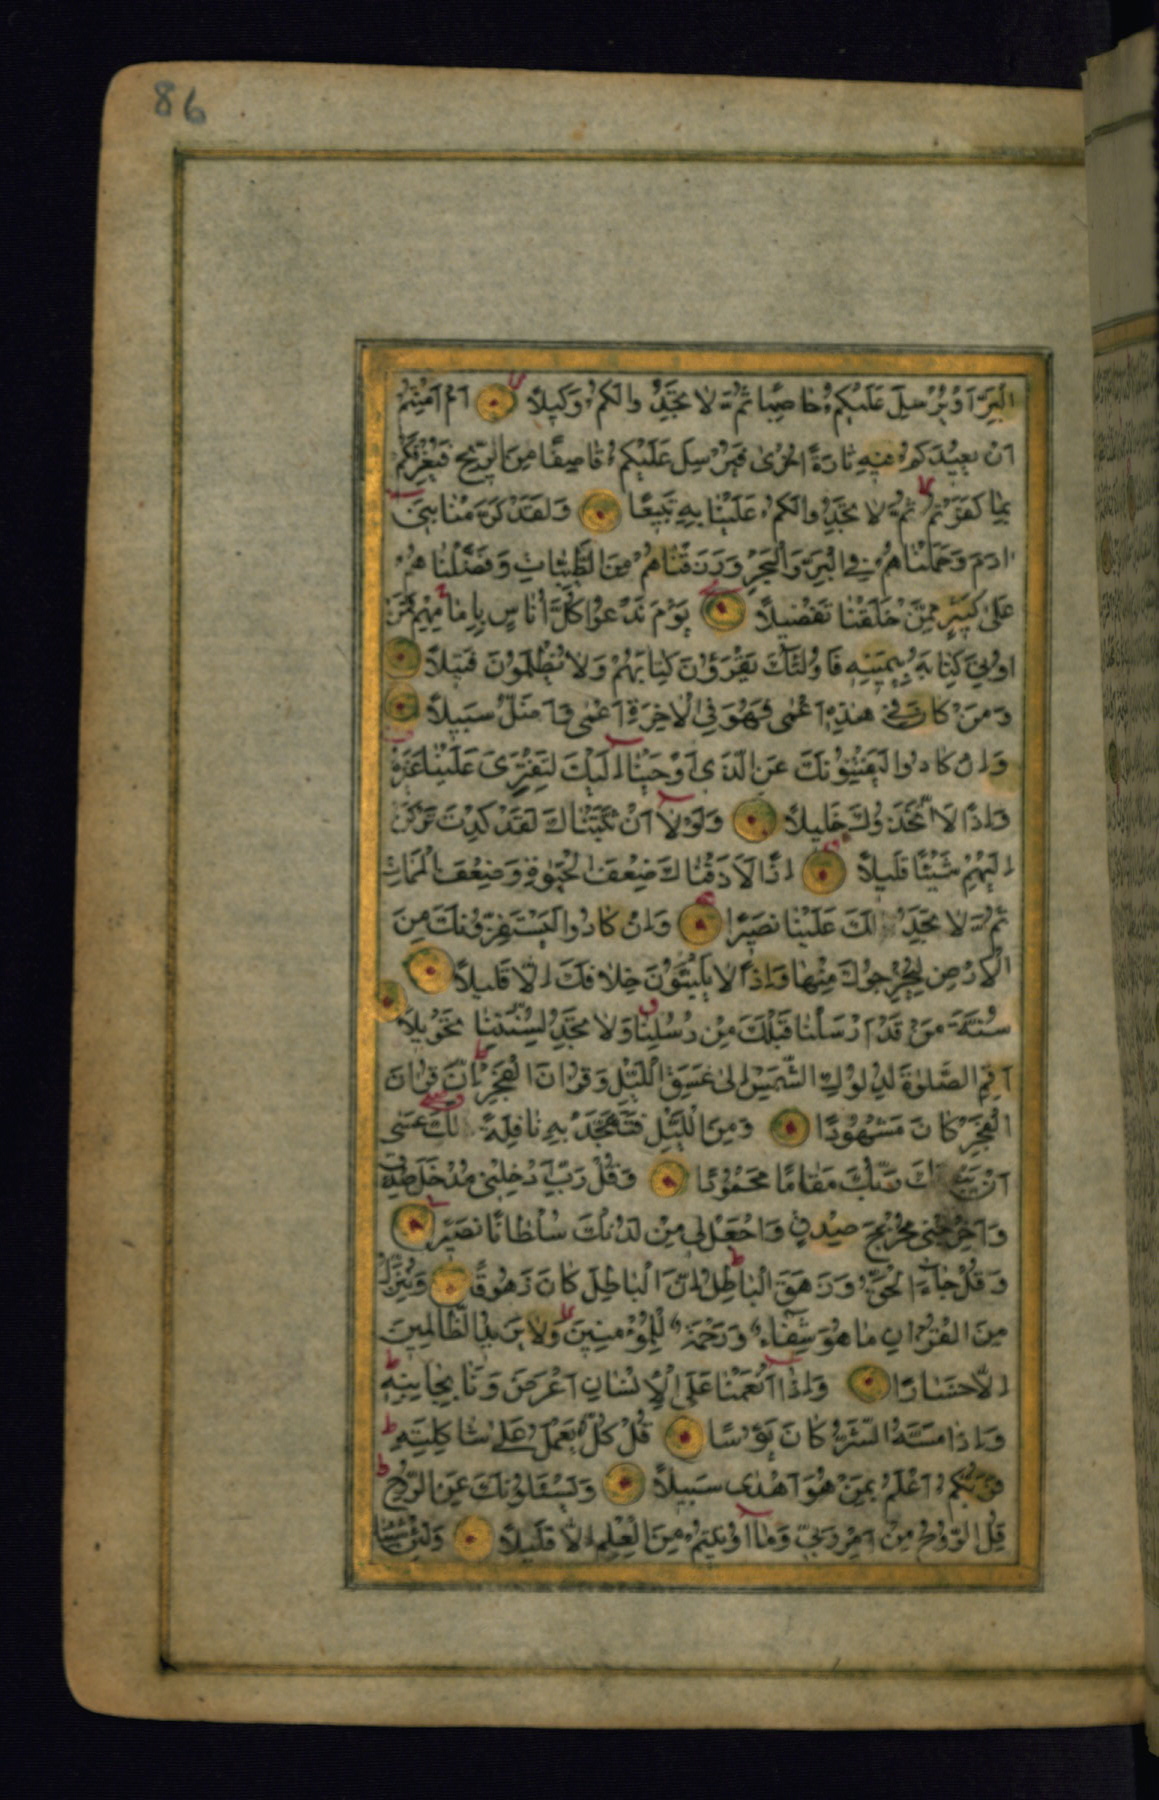 86
الْبَرِّ اَوْ يُرْسِلَ عَلَيْكُمْ حَاصِبًا ثُمَّ لَا تَجِدُوا لَكُمْ وَكِيلًا اَمْ اَمِنْتُمْ
اَنْ يُعِيدَكُمْ فِيهِ تَارَةً اُخْرٰى فَيُرْسِلَ عَلَيْكُمْ قَاصِفًا مِنَ الرِّيحِ فَيُغْرِقَكُمْ
بِمَا كَفَرْتُمْ ثُمَّ لَا تَجِدُوا لَكُمْ عَلَيْنَا بِهِ تَبِيعًا وَلَقَدْ كَرَّمْنَا بَنِي
اٰدَمَ وَحَمَلْنَاهُمْ فِي الْبَرِّ وَالْبَحْرِ وَرَزَقْنَاهُمْ مِنَ الطَّيِّبَاتِ وَفَضَّلْنَاهُمْ
عَلٰى كَثِيرٍ مِمَّنْ خَلَقْنَا تَفْضِيلًا يَوْمَ نَدْعُوا كُلَّ اُنَاسٍ بِاِمَامِهِمْ فَمَنْ
اُوتِيَ كِتَابَهُ بِيَمِينِهِ فَاُولٰئِكَ يَقْرَؤُنَ كِتَابَهُمْ وَلَا يُظْلَمُونَ فَتِيلًا
وَمَنْ كَانَ فِي هٰذِهِ اَعْمٰى فَهُوَ فِي الْاٰخِرَةِ اَعْمٰى وَاَضَلُّ سَبِيلًا
وَاِنْ كَادُوا لَيَفْتِنُونَكَ عَنِ الَّذِي اَوْحَيْنَا اِلَيْكَ لِتَفْتَرِيَ عَلَيْنَا غَيْرَهُ
وَاِذًا لَاتَّخَذُوكَ خَلِيلًا وَلَوْلَا اَنْ ثَبَّتْنَاكَ لَقَدْ كِدْتَ تَرْكَنُ
اِلَيْهِمْ شَيْئًا قَلِيلًا اِذًا لَاَذَقْنَاكَ ضِعْفَ الْحَيٰوةِ وَضِعْفَ الْمَمَاتِ
ثُمَّ لَا تَجِدُ لَكَ عَلَيْنَا نَصِيرًا وَاِنْ كَادُوا لَيَسْتَفِزُّونَكَ مِنَ
الْاَرْضِ لِيُخْرِجُوكَ مِنْهَا وَاِذًا لَا يَلْبَثُونَ خِلَافَكَ اِلَّا قَلِيلًا
سُنَّةَ مَنْ قَدْ اَرْسَلْنَا قَبْلَكَ مِنْ رُسُلِنَا وَلَا تَجِدُ لِسُنَّتِنَا تَحْوِيلًا
اَقِمِ الصَّلٰوةَ لِدُلُوكِ الشَّمْسِ اِلٰى غَسَقِ اللَّيْلِ وَقُرْاٰنَ الْفَجْرِ اِنَّ قُرْاٰنَ
الْفَجْرِ كَانَ مَشْهُودًا وَمِنَ اللَّيْلِ فَتَهَجَّدْ بِهِ نَافِلَةً لَكَ عَسٰى
اَنْ يَبْعَثَكَ رَبُّكَ مَقَامًا مَحْمُودًا وَقُلْ رَبِّ اَدْخِلْنِي مُدْخَلَ صِدْقٍ
وَاَخْرِجْنِي مُخْرَجَ صِدْقٍ وَاجْعَلْ لِي مِنْ لَدُنْكَ سُلْطَانًا نَصِيرًا
وَقُلْ جَاءَ الْحَقُّ وَزَهَقَ الْبَاطِلُ اِنَّ الْبَاطِلَ كَانَ زَهُوقًا وَنُنَزِّلُ
مِنَ الْقُرْاٰنِ مَا هُوَ شِفَاءٌ وَرَحْمَةٌ لِلْمُؤْمِنِينَ وَلَا يَزِيدُ الظَّالِمِينَ
اِلَّا خَسَارًا وَاِذَا اَنْعَمْنَا عَلَى الْاِنْسَانِ اَعْرَضَ وَنَاٰ بِجَانِبِهِ
وَاِذَا مَسَّهُ الشَّرُّ كَانَ يَؤُسًا قُلْ كُلٌّ يَعْمَلُ عَلٰى شَاكِلَتِهِ
فَرَبُّكُمْ اَعْلَمُ بِمَنْ هُوَ اَهْدٰى سَبِيلًا وَيَسْئَلُونَكَ عَنِ الرُّوحِ
قُلِ الرُّوحُ مِنْ اَمْرِ رَبِّي وَمَا اُوتِيتُمْ مِنَ الْعِلْمِ اِلَّا قَلِيلًا وَلَئِنْ شِئْنَا